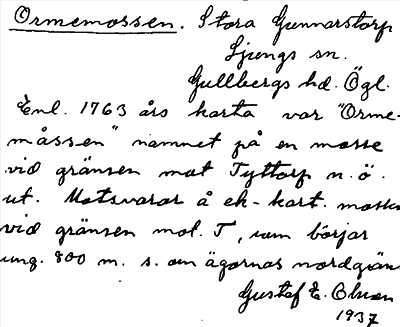 Ormemossen. Stora Gunnarstorp
Ljungs sn.
Gullbergs hd. Ögl.
Enl. 1763 års karta var "Orme-
måssen" namnet på en mosse
vid gränsen mot Tyttorp n. ö.
ut. Motsvarar å ek-kart. mossen
vid gränsen mot. T, som börjar
ung. 800 m. s. om ägornas nordgräns
Gustaf E. Olsson
1937